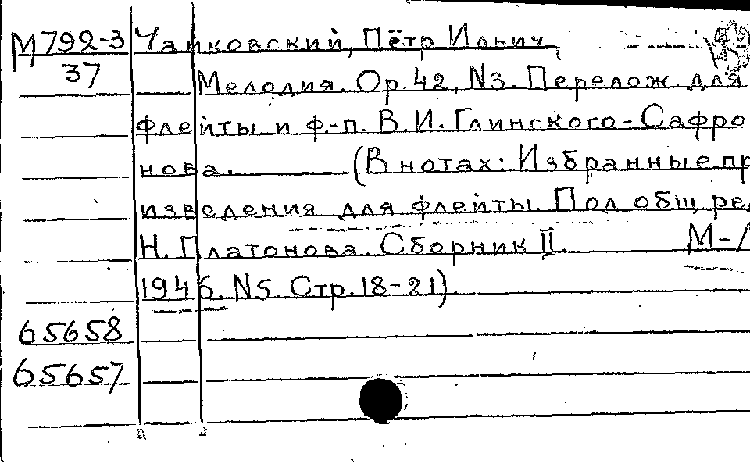 М792-3 Чайковский, Пётр Ильич
37 Мелодия. Ор. 42, N3. Перелож для
флейты и ф.-п. В. И. Глинского-Сафро
нова. (В нотах: Избранные пр
изведения для флейты. Под общ. ре
Н. Платонова. Сборник II. М-
1946. N5. Стр. 18-21).
65658
65657